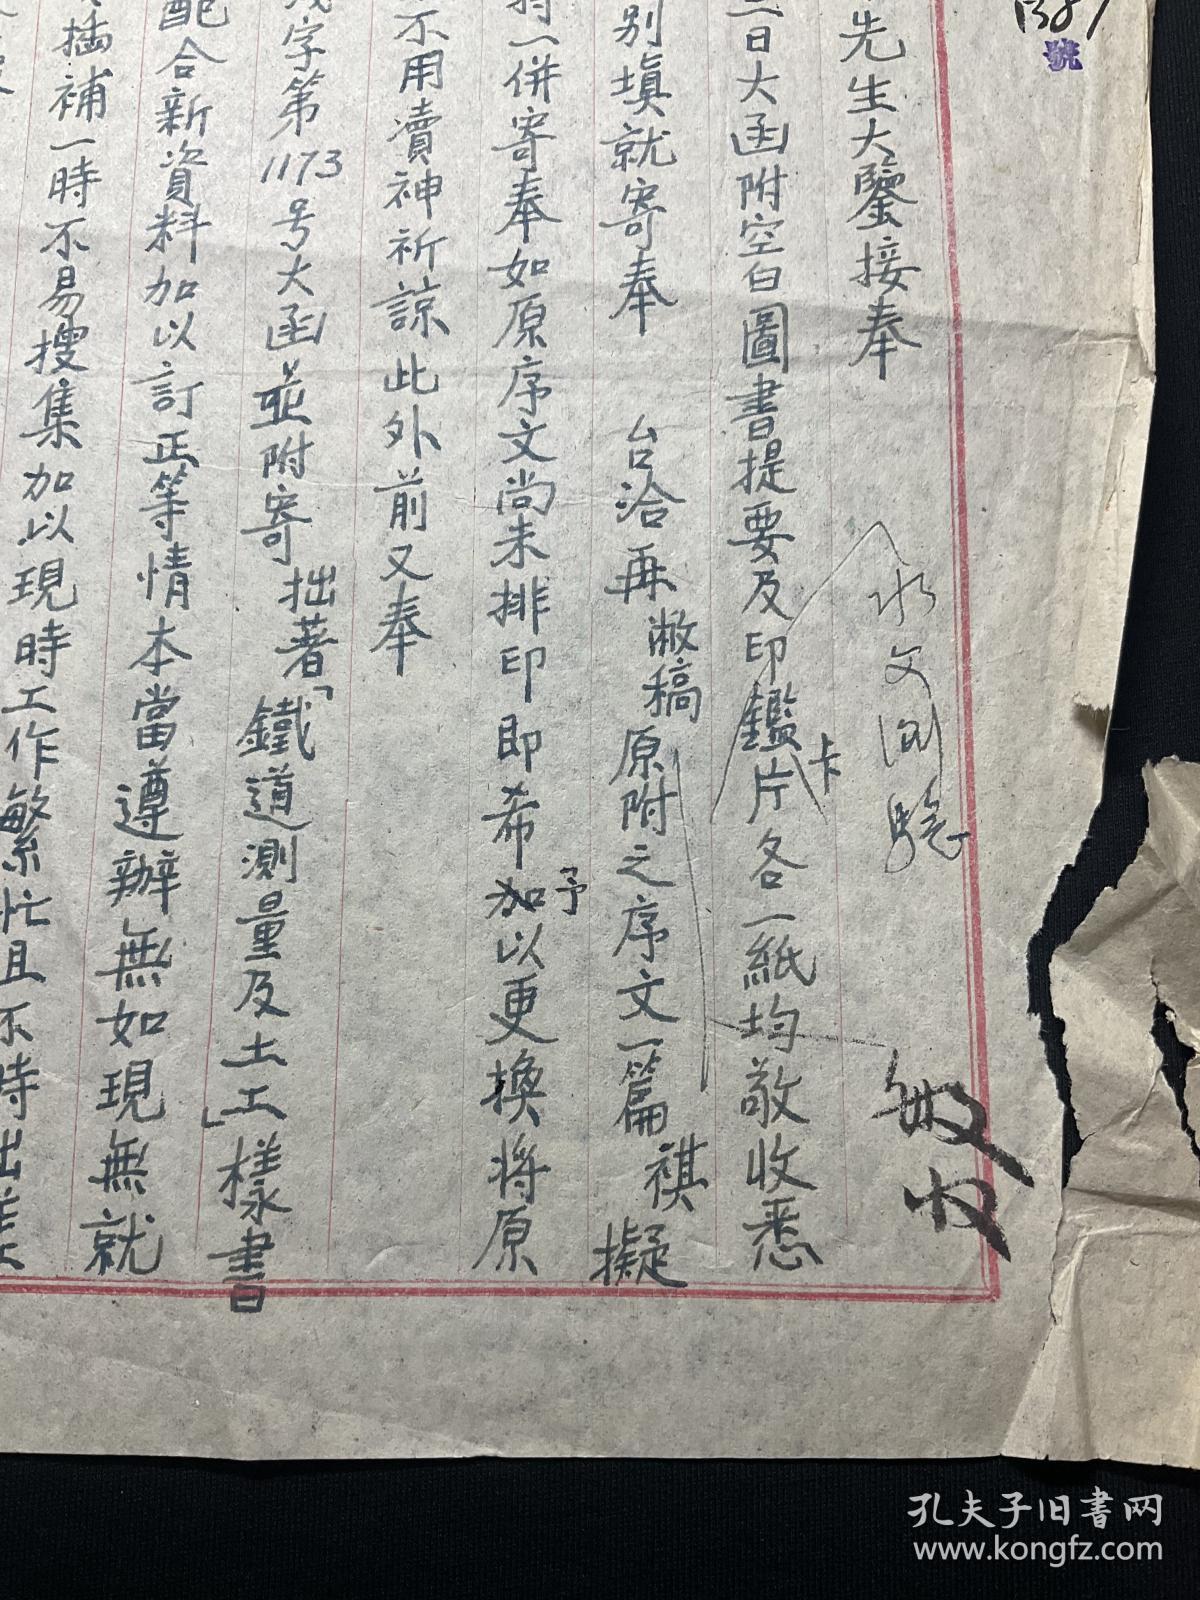 1381
號
先生大鑒接奉
水文測驗
日大函附空白圖書提要及印鑑卡片各一紙均敬收悉
别填就寄奉 台洽再敝稿原附之序文一篇祺擬
一併寄奉如原序文尚未排印即希予以更換將原
不用瀆神祈諒此外前又奉
字第1173号大函並附寄拙著「鐵道測量及土工」樣書
配合新資料加以訂正等情本當遵辦無如現無就
插補一時不易搜集加以現時工作繁忙且不時出差
孔夫子旧书网
www.kongfz.com